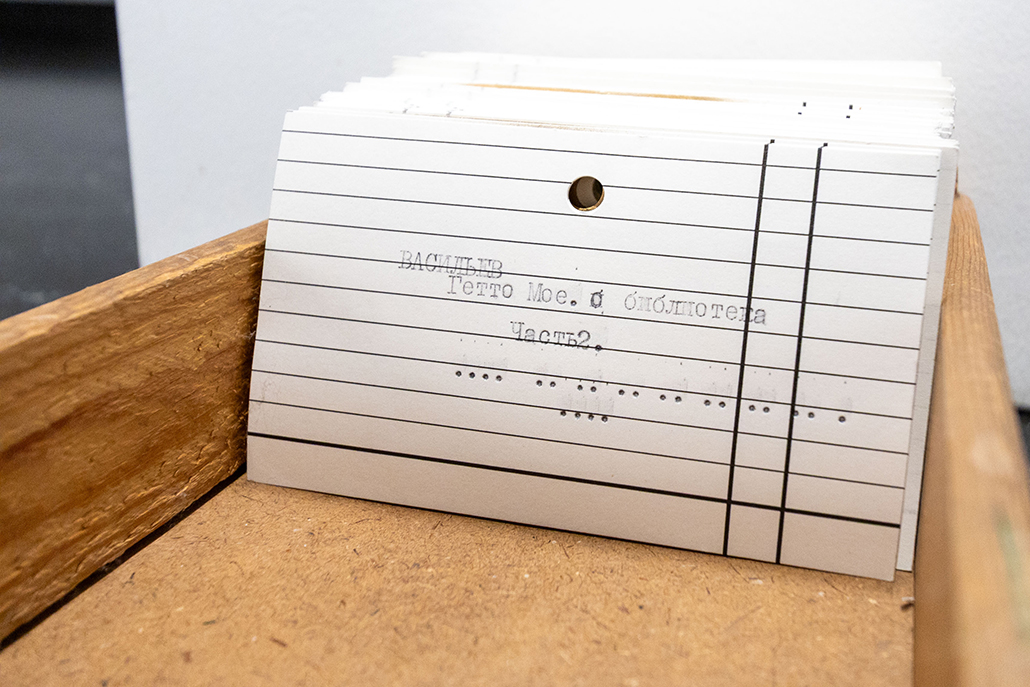 ВАСИЛЬЕВ
Гетто Мое. о библиотека
Часть2.
.... .. .. .. .. .. .. .. .
....